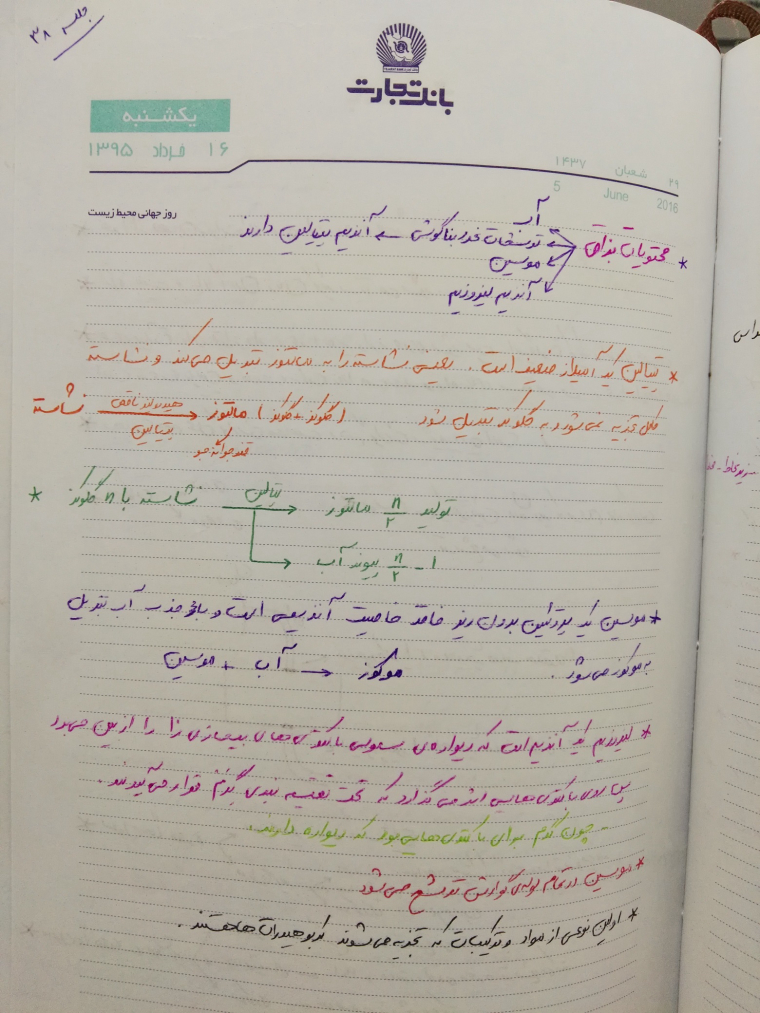 جلسه ۳۸
بانک تجارت
یکشنبه
۱۶ خرداد ۱۳۹۵
۲۹ شعبان ۱۴۳۷
5 June 2016
روز جهانی محیط زیست
آب
* محتویات بزاق ترشحات غدد بناگوشی ← آنزیم پتیالین دارند
موسین
آنزیم لیزوزیم
* پتیالین یک آمیلاز ضعیف است. یعنی نشاسته را به مالتوز تبدیل می‌کند و نشاسته
کامل تجزیه نمی‌شود و به گلوکز تبدیل شود
نشاسته هیدرولیز ناقص پتیالین → مالتوز (گلوکز + گلوکز)
قند جوانه جو
* نشاسته با n گلوکز پتیالین → n/۲ مالتوز تولید
→ n/۲ - ۱ پیوند آب
* موسین یک پروتئین بدون رنگ فاقد خاصیت آنزیمی است و با جذب آب تبدیل
به موکوز می‌شود.
موسین + آب → موکوز
* لیزوزیم یک آنزیم است که دیواره‌ی سلولی باکتری‌های بیماری زا را از بین می‌برد
پس روی باکتری‌هایی اثر می‌گذارد که تحت تقسیم بندی گرم قرار می‌گیرند.
- چون گرم برای باکتری‌هایی بود که دیواره دارند.
* موسین در تمام لوله‌ی گوارش ترشح می‌شود
* اولین نوعی از مواد و ترکیبات که تجزیه می‌شوند کربوهیدرات ها هستند.